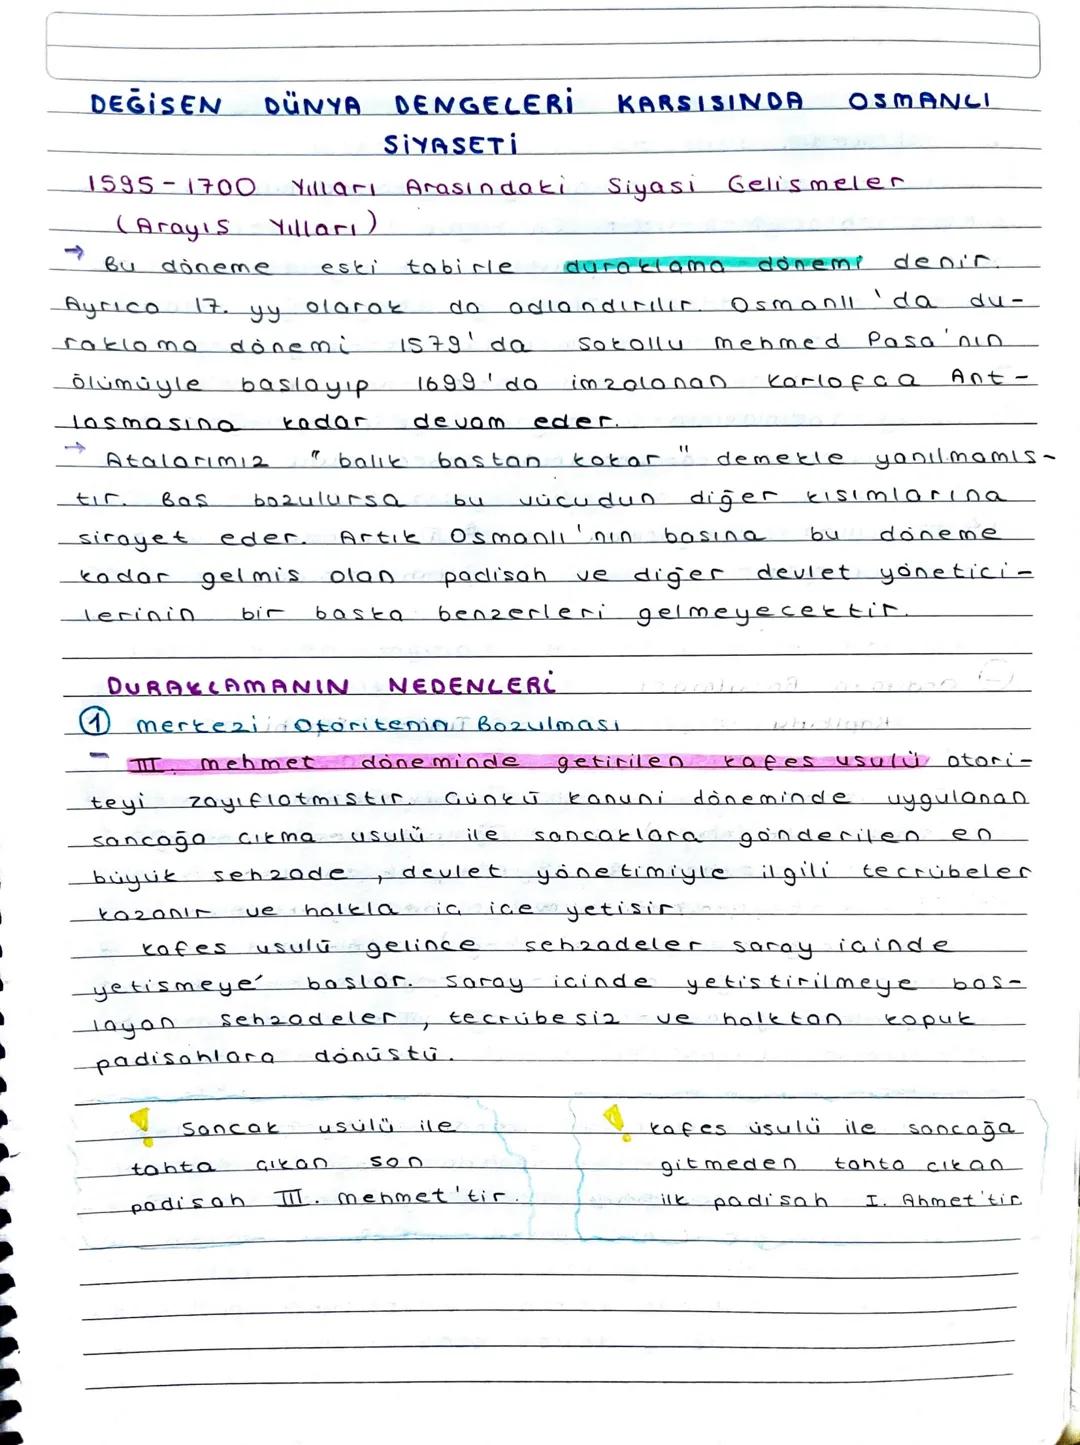 DEĞİSEN DÜNYA DENGELERİ KARSISINDA OSMANLI
SİYASETİ
1595-1700 Yılları Arasındaki Siyasi Gelismeler
(Arayıs Yılları)
→ Bu döneme eski tabirle duraklama dönemi denir.
Ayrıca 17. yy olarak da adlandırılır. Osmanlı'da du-
raklama dönemi 1579'da Sokollu mehmed Pasa'nın
ölümüyle baslayıp 1699'da imzalanan Karlofca Ant-
lasmasına kadar devam eder.
→ Atalarımız "balık bastan kokar" demekle yanılmamıs-
tır. Bas bozulursa bu vücudun diğer kısımlarına
sirayet eder. Artık Osmanlı'nın basına bu döneme
kadar gelmis olan padisah ve diğer devlet yönetici-
lerinin bir baska benzerleri gelmeyecektir.
DURAKLAMANIN NEDENLERİ
① merkezi Otoritenin Bozulması
- III. mehmet döneminde getirilen kafes usulü otori-
teyi zayıflatmıstır. Cünkü kanuni döneminde uygulanan
sancağa cıkma usulü ile sancaklara gönderilen en
büyük sehzade, devlet yönetimiyle ilgili tecrübeler
kazanır ve halkla ic ice yetisir.
- kafes usulü gelince sehzadeler saray icinde
yetismeye baslar. Saray icinde yetistirilmeye bas-
layan sehzadeler, tecrübesiz ve halktan kopuk
padisahlara dönüstü.
! Sancak usülü ile
tahta cıkan son
padisah III. mehmet'tir.
! kafes üsulü ile sancağa
gitmeden tahta cıkan
ilk padisah I. Ahmet'tir